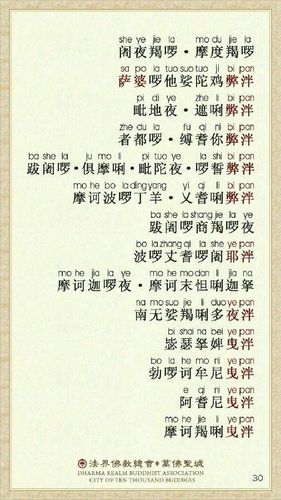 she ye jie la mo du jie la
闍夜羯囉·摩度羯囉
sa po la tuo suo tuo ji bi pan
萨婆囉他娑陀鸡弊泮
pi di ye zhe li bi pan
毗地夜·遮唎弊泮
zhe du la fu qi ni bi pan
者都囉·缚耆你弊泮
ba she la ju mo li pi tuo ye la shi bi pan
跋闍囉·俱摩唎·毗陀夜·囉誓弊泮
mo he bo la ding yang yi qi li bi pan
摩诃波囉丁羊·乂耆唎弊泮
ba she la shang jie la ye
跋闍囉商羯囉夜
bo la zhang qi la she ye pan
波囉丈耆囉闍耶泮
mo he jia la ye mo he mo dan li jia na
摩诃迦囉夜·摩诃末怛唎迦拏
na mo suo jie li duo ye pan
南无娑羯唎多夜泮
bi shai na bei ye pan
毖瑟拏婢曳泮
bo la he mo ni ye pan
勃囉诃牟尼曳泮
e qi ni ye pan
阿耆尼曳泮
mo he jie li ye pan
摩诃羯唎曳泮
法界佛教總會·萬佛聖城
DHARMA REALM BUDDHIST ASSOCIATION
CITY OF TEN THOUSAND BUDDHAS
30